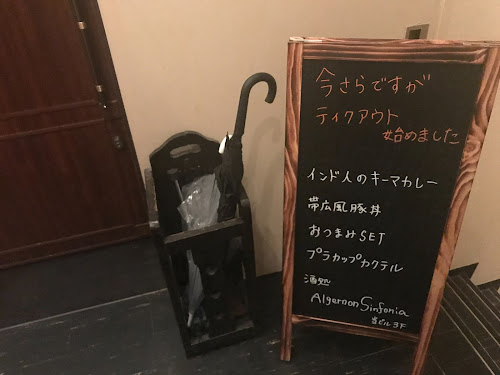 今さらですが
テイクアウト
始めました
インド人のキーマカレー
帯広風豚丼
おつまみSET
プラカップカクテル
酒処
Algernon Sinfonia
当ビル3F